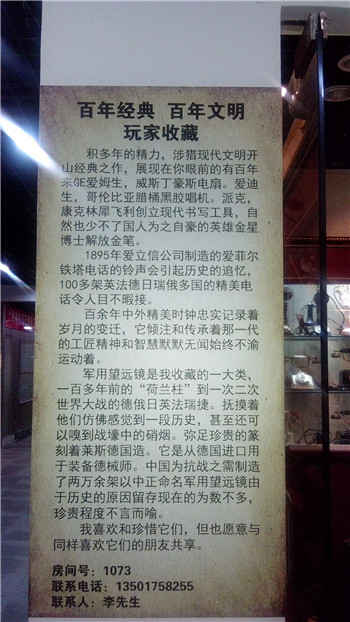 百年经典 百年文明
玩家收藏
积多年的精力，涉猎现代文明开
山经典之作，展现在你眼前的有百年
来GE爱姆生，威斯丁豪斯电扇。爱迪
生，哥伦比亚腊桶黑胶唱机。派克，
康克林犀飞利创立现代书写工具，自
然也少不了国人为之自豪的英雄金星
博士解放金笔。
1895年爱立信公司制造的爱菲尔
铁塔电话的铃声会引起历史的追忆，
100多架英法德日瑞俄多国的精美电
话令人目不暇接。
百余年中外精美时钟忠实记录着
岁月的变迁，它倾注和传承着那一代
的工匠精神和智慧默默无闻始终不渝
运动着。
军用望远镜是我收藏的一大类，
一百多年前的“荷兰柱”到一次二次
世界大战的德俄日英法瑞捷。抚摸着
他们仿佛感觉到一段历史，甚至还可
以嗅到战壕中的硝烟。弥足珍贵的篆
刻着莱斯德国造。它是从德国进口用
于装备德械师。中国为抗战之需制造
了两万余架以中正命名军用望远镜由
于历史的原因留存现在的为数不多，
珍贵程度不言而喻。
我喜欢和珍惜它们，但也愿意与
同样喜欢它们的朋友共享。
房间号：1073
联系电话：13501758255
联系人：李先生